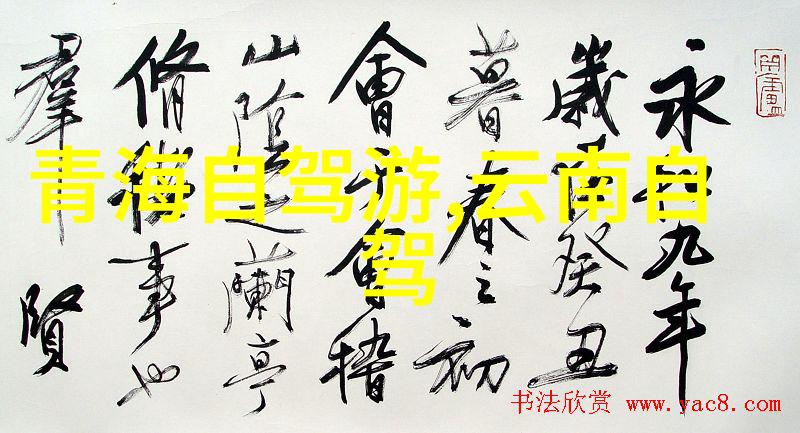 永和九年
歲在癸丑
暮春之初
會于會稽
山陰之蘭亭
脩稧事也
羣賢
青海自驾游,云南自
驾
书法欣赏 www.yac8.com